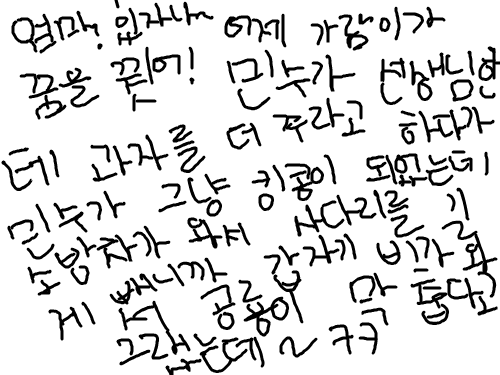 엄마! 있자나~ 어제 가람이가
꿈을 꿨어! 민수가 선생님한
테 과자를 더 주라고 하다가
민수가 그냥 킹콩이 되었는데
소방차가 와서 사다리를 길
게 빼니까 갑자기 비가 와
서 공룡이 막 춥다고
그랬는데~ ㅋㅋ